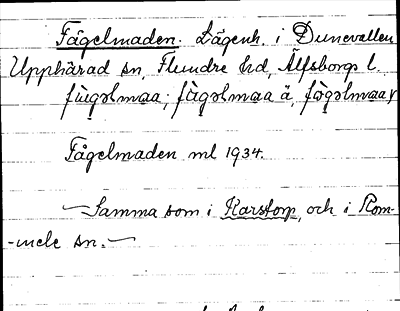 Fågelmaden. Lägenh. i Dunevallen
Upphärad sn, Flundre hd, Älfsborgs l.
fùgəlmaa; fàgəlmaa ä, fògəlmaa
Fågelmaden ml 1934.
—Samma som i Karstorp, och i Rom-
-mele sn.—